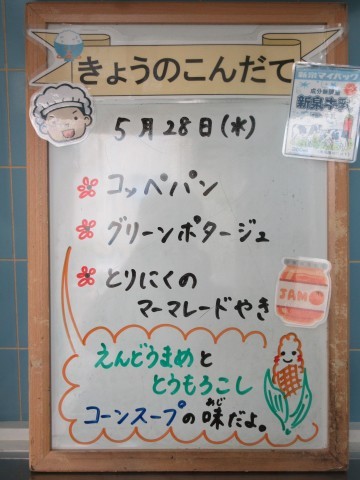 きょうのこんだて
5月28日(水)
コッペパン
グリーンポタージュ
とりにくの
マーマレードやき
えんどうまめと
とうもろこし
コーンスープの味だよ。
あじ
JAM
新泉牛乳